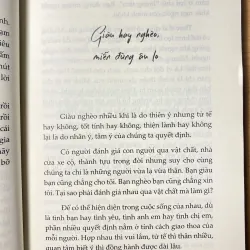 Giàu hay nghèo,
miễn đừng âu lo
Giàu nghèo nhiều khi là do thiên ý nhưng tử tế
hay không, tốt tính hay không, thiện lành hay không
lại là do nhân ý, tâm ý của chúng ta quyết định.
Có người đánh giá con người qua vật chất, nhà
cửa xe cộ, thành tựu trong đời nhưng suy cho cùng
chúng ta chỉ là những người vừa lạ vừa thân. Bạn giàu
bạn cũng chẳng cho tôi. Bạn nghèo bạn cũng chẳng xin
tôi. Tại sao phải đánh giá nhau qua vật chất mà làm gì?
Để có thể hiện diện trong cuộc sống của nhau, dù
là tình bạn hay tình yêu, tình anh em hay tình chị em,
phần nhiều quyết định nằm ở tính cách giao thoa của
mỗi người. Hợp nhau thì vui lắm, tử tế thì thân nhiều,
quan tâm biết ý thì đồng hành được dài lâu.